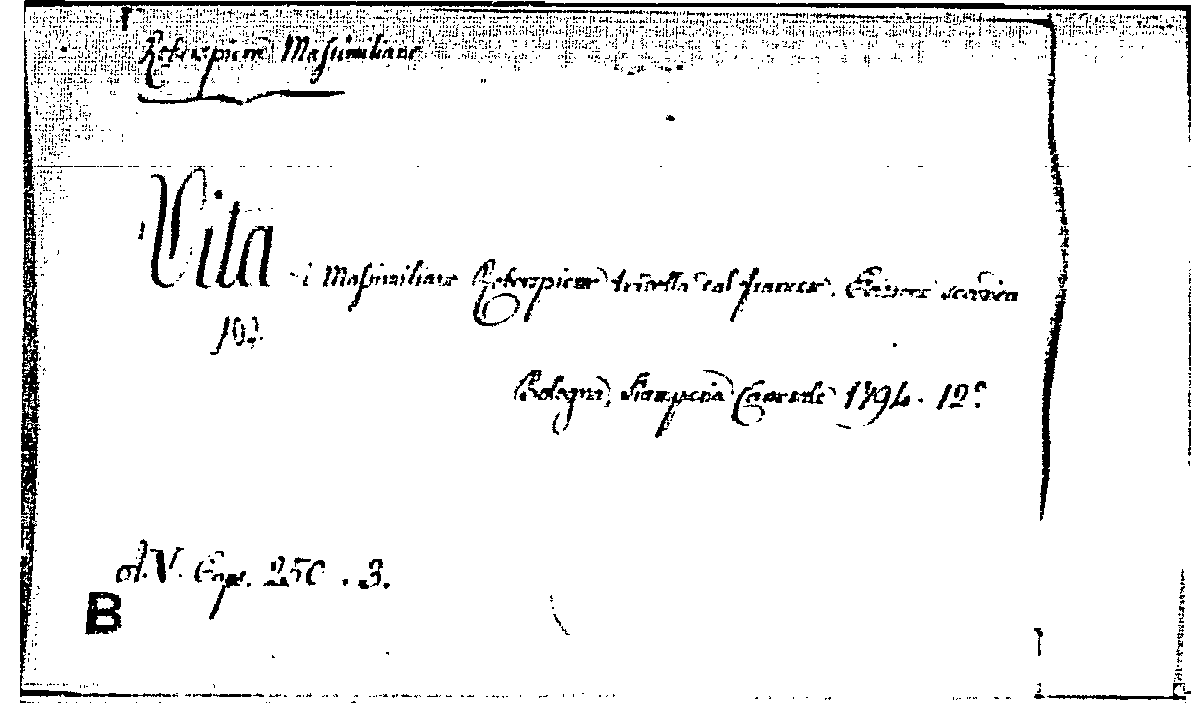 Roberspierre Massimiliano
Vita di Massimiliano Roberspierre tradotta dal francese. Edizione seconda
Bologna, Stamperia Camerale 1794. 12º
A.V. Caps. 250. 3.
B